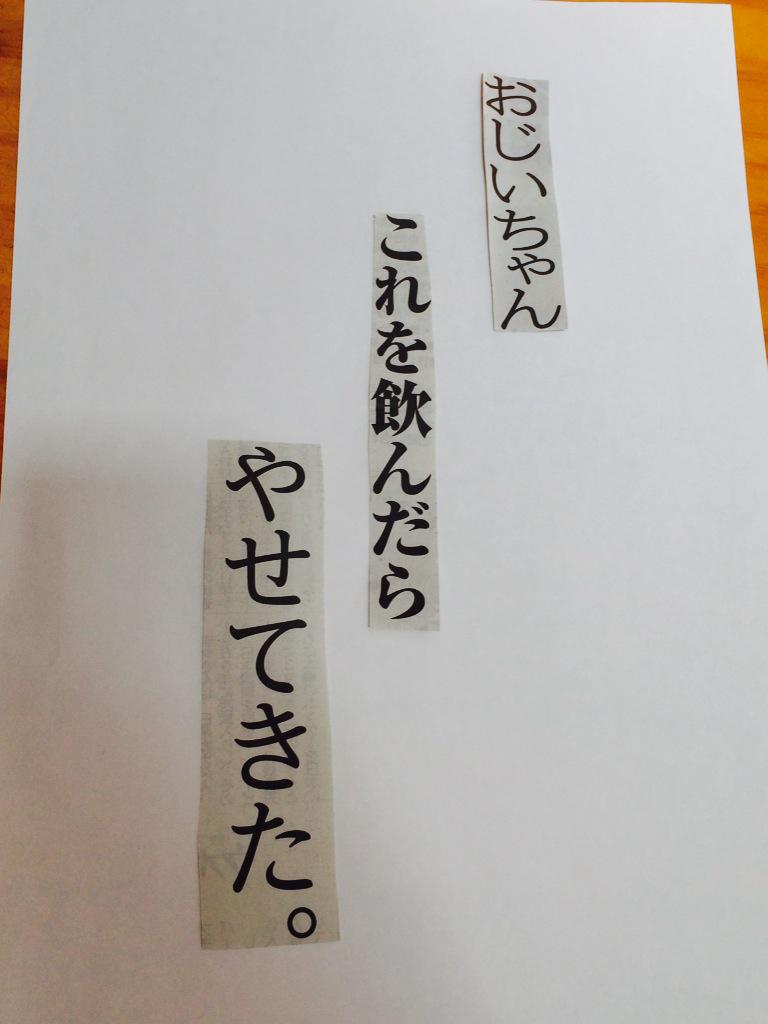 おじいちゃん
これを飲んだら
やせてきた。